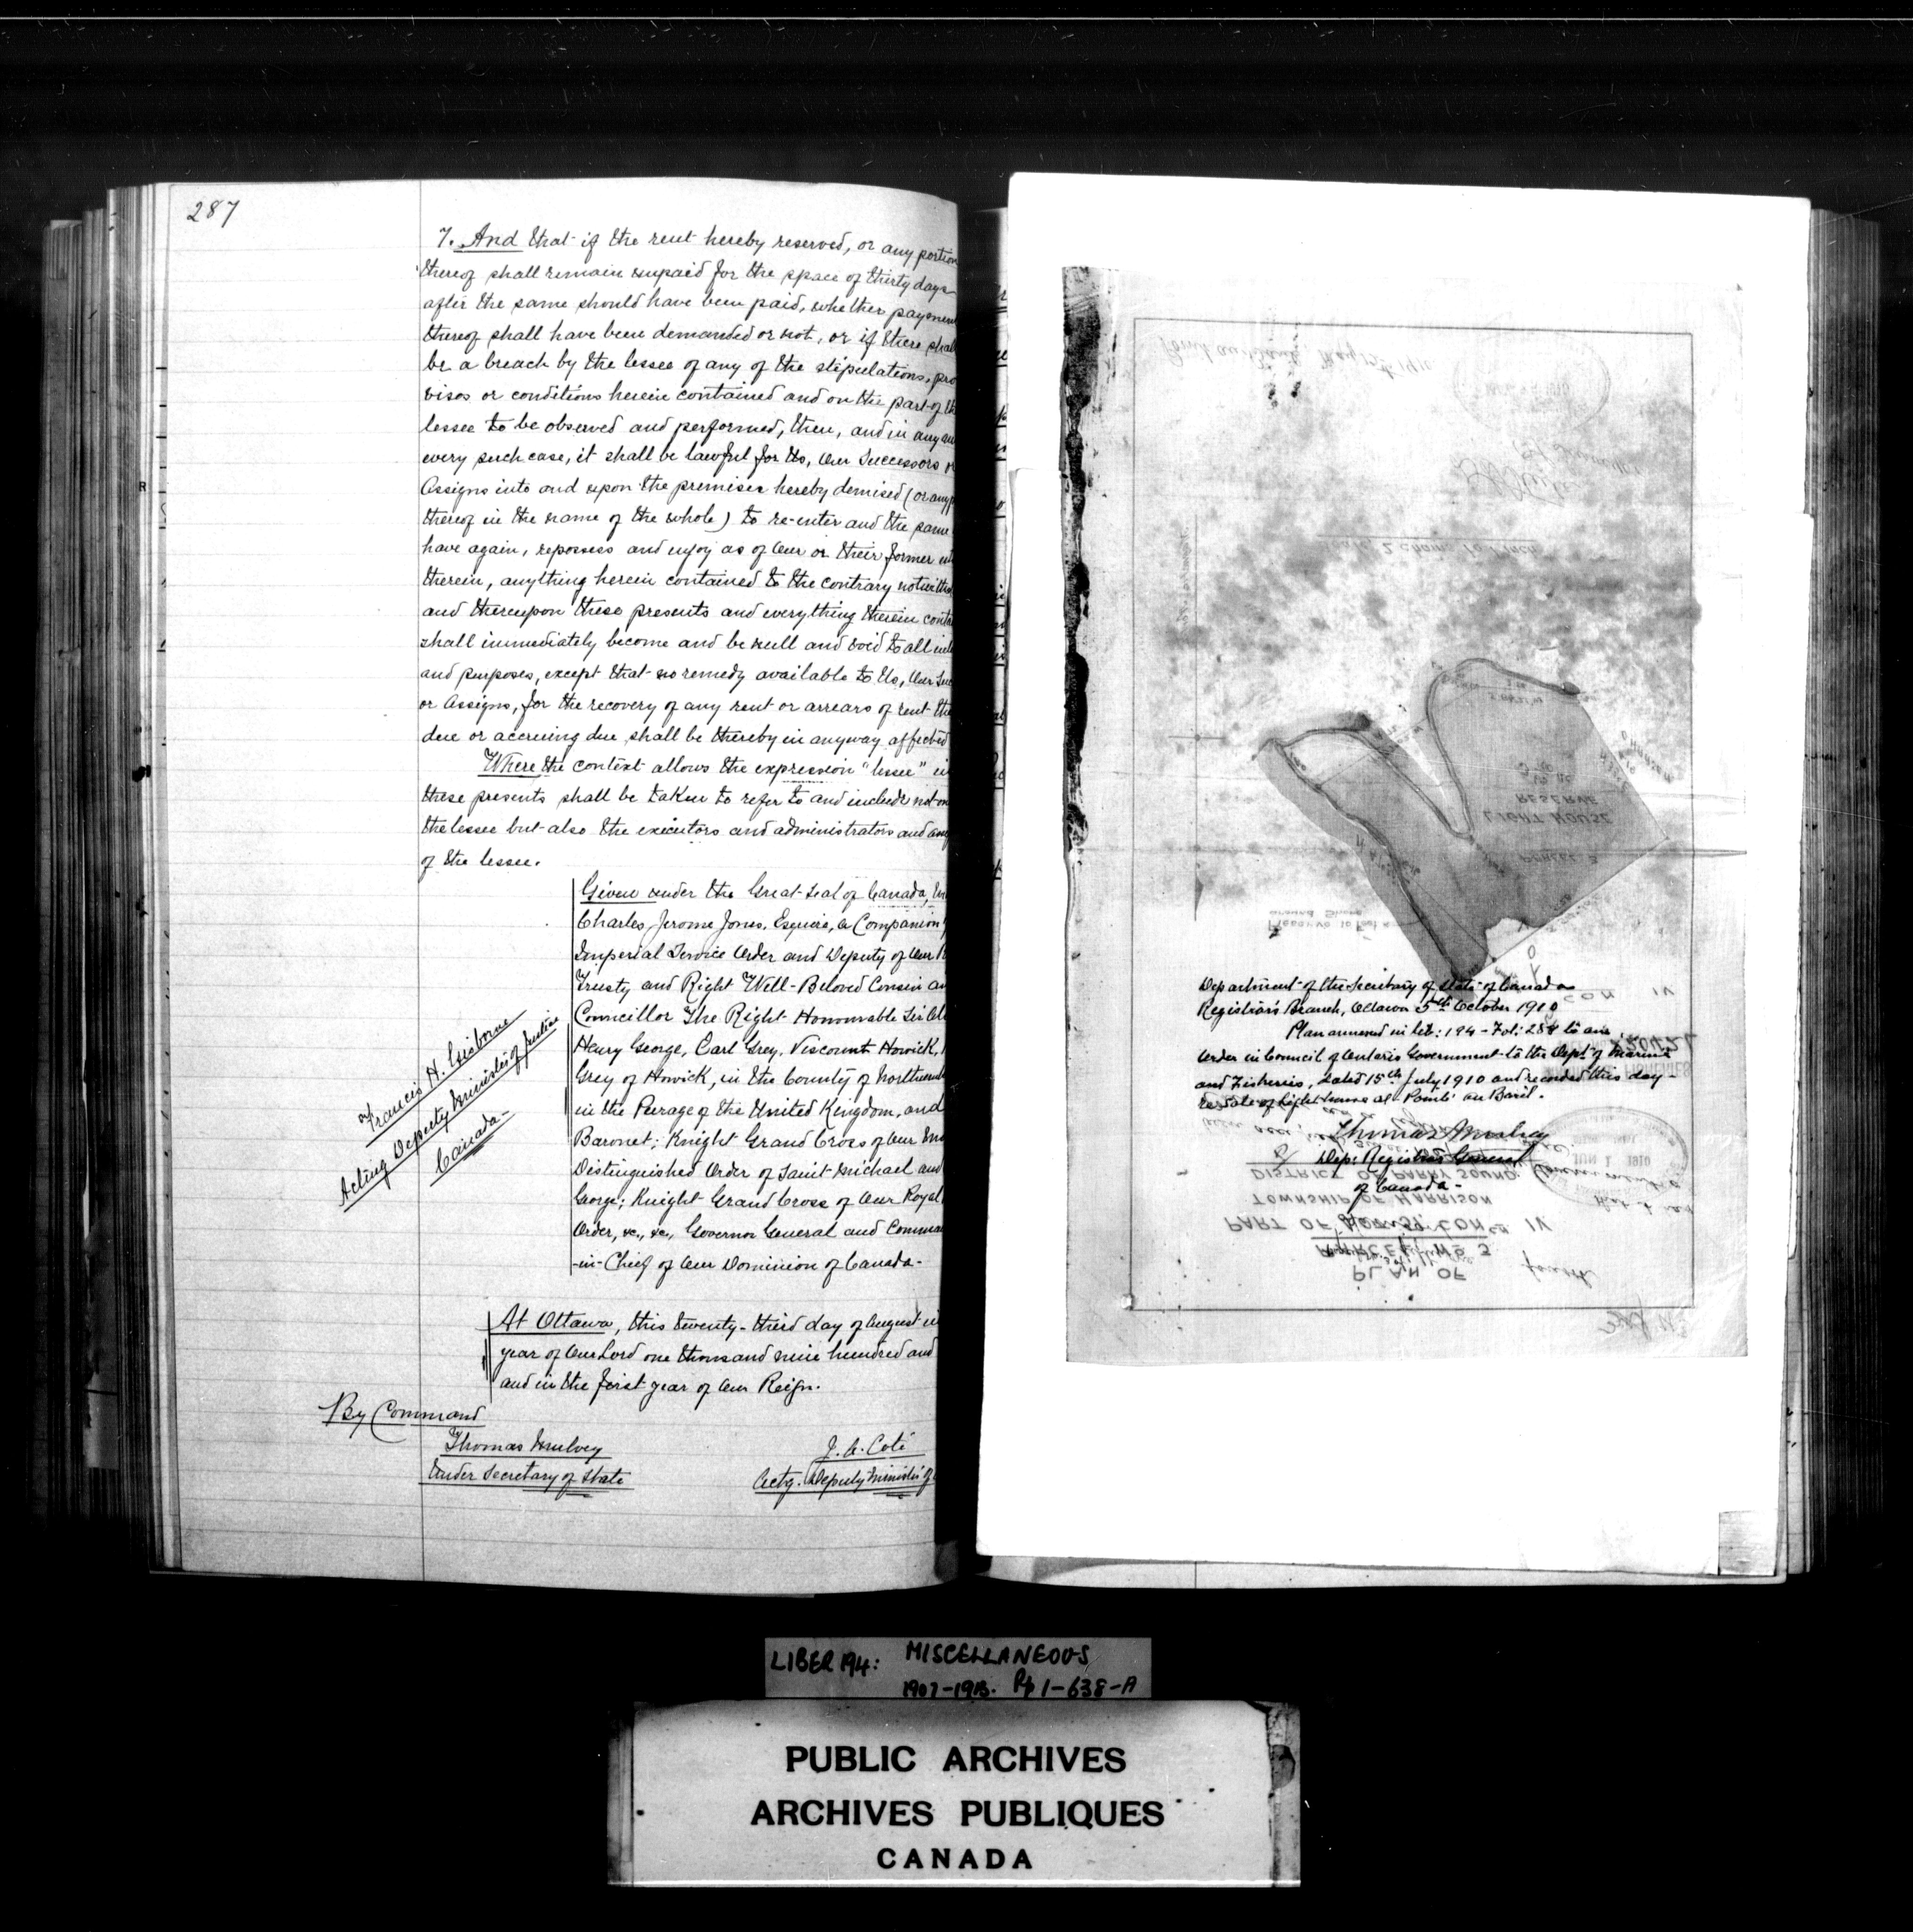 287
7. And that if the rent hereby reserved, or any portion
thereof shall remain unpaid for the space of thirty days
after the same should have been paid, whether paymen
thereof shall have been demanded or not, or if there shal
be a breach by the lessee of any of the stipulations, pro
visos or conditions herein contained and on the part of th
lessee to be observed and performed, then, and in any an
every such case, it shall be lawful for Us, Our Successors or
Assigns into and upon the premises hereby demised (or any p
thereof in the name of the whole) to re-enter and the same
have again, repossess and enjoy as of Our or their former
therein, anything herein contained to the contrary notwiths
and thereupon these presents and everything therein conta
shall immediately become and be null and void to all
and purposes, except that no remedy available to Us, Our Suc
or Assigns, for the recovery of any rent or arrears of rent the
due or accruing due shall be thereby in anyway affected
Where the context allows the expression "lessee" in
these presents shall be taken to refer to and include not on
the lessee but also the executors and administrators and
of the lessee.
Given under the Great Seal of Canada,
Charles Jerome Jones, Esquire, a Companion
Imperial Service Order and Deputy of Our
Trusty and Right Well-Beloved Cousin an
Councillor The Right Honourable Sir
Henry George, Earl Grey, Viscount Howick,
Grey of Howick, in the County of Northum
in the Peerage of the United Kingdom, and
Baronet; Knight Grand Cross of Our
Distinguished Order of Saint Michael and
George; Knight Grand Cross of Our Royal
Order, &c., &c., Governor General and Comma
-in-Chief of Our Dominion of Canada.
Francis H. Gisborne
Acting Deputy Minister of Justice
Canada
At Ottawa, this twenty-third day of August in
year of Our Lord one thousand nine hundred and
and in the first year of Our Reign.
By Command
Thomas Mulvey
Under Secretary of State
J. A. Coté
Actg. Deputy Minister of
LIGHT HOUSE
RESERVE
Reserve 10 feet
around Shore
CON IV
Department of the Secretary of State of Canada
Registrar's Branch, Ottawa 5th October 1910
Plan annexed in Lib: 194 - Fol: 288 to an
Order in Council of Ontario Government to the Dept. of Marine
and Fisheries, dated 15th July 1910 and recorded this day -
re Sale of light house at Pointe au Baril.
Thomas Mulvey
Dep: Registrar General
of Canada -
JUN 1 1910
DISTRICT OF PARRY SOUND
TOWNSHIP OF HARRISON
PLAN OF
LIBER 194: MISCELLANEOUS
1907-1913. Pp 1-638-A
PUBLIC ARCHIVES
ARCHIVES PUBLIQUES
CANADA